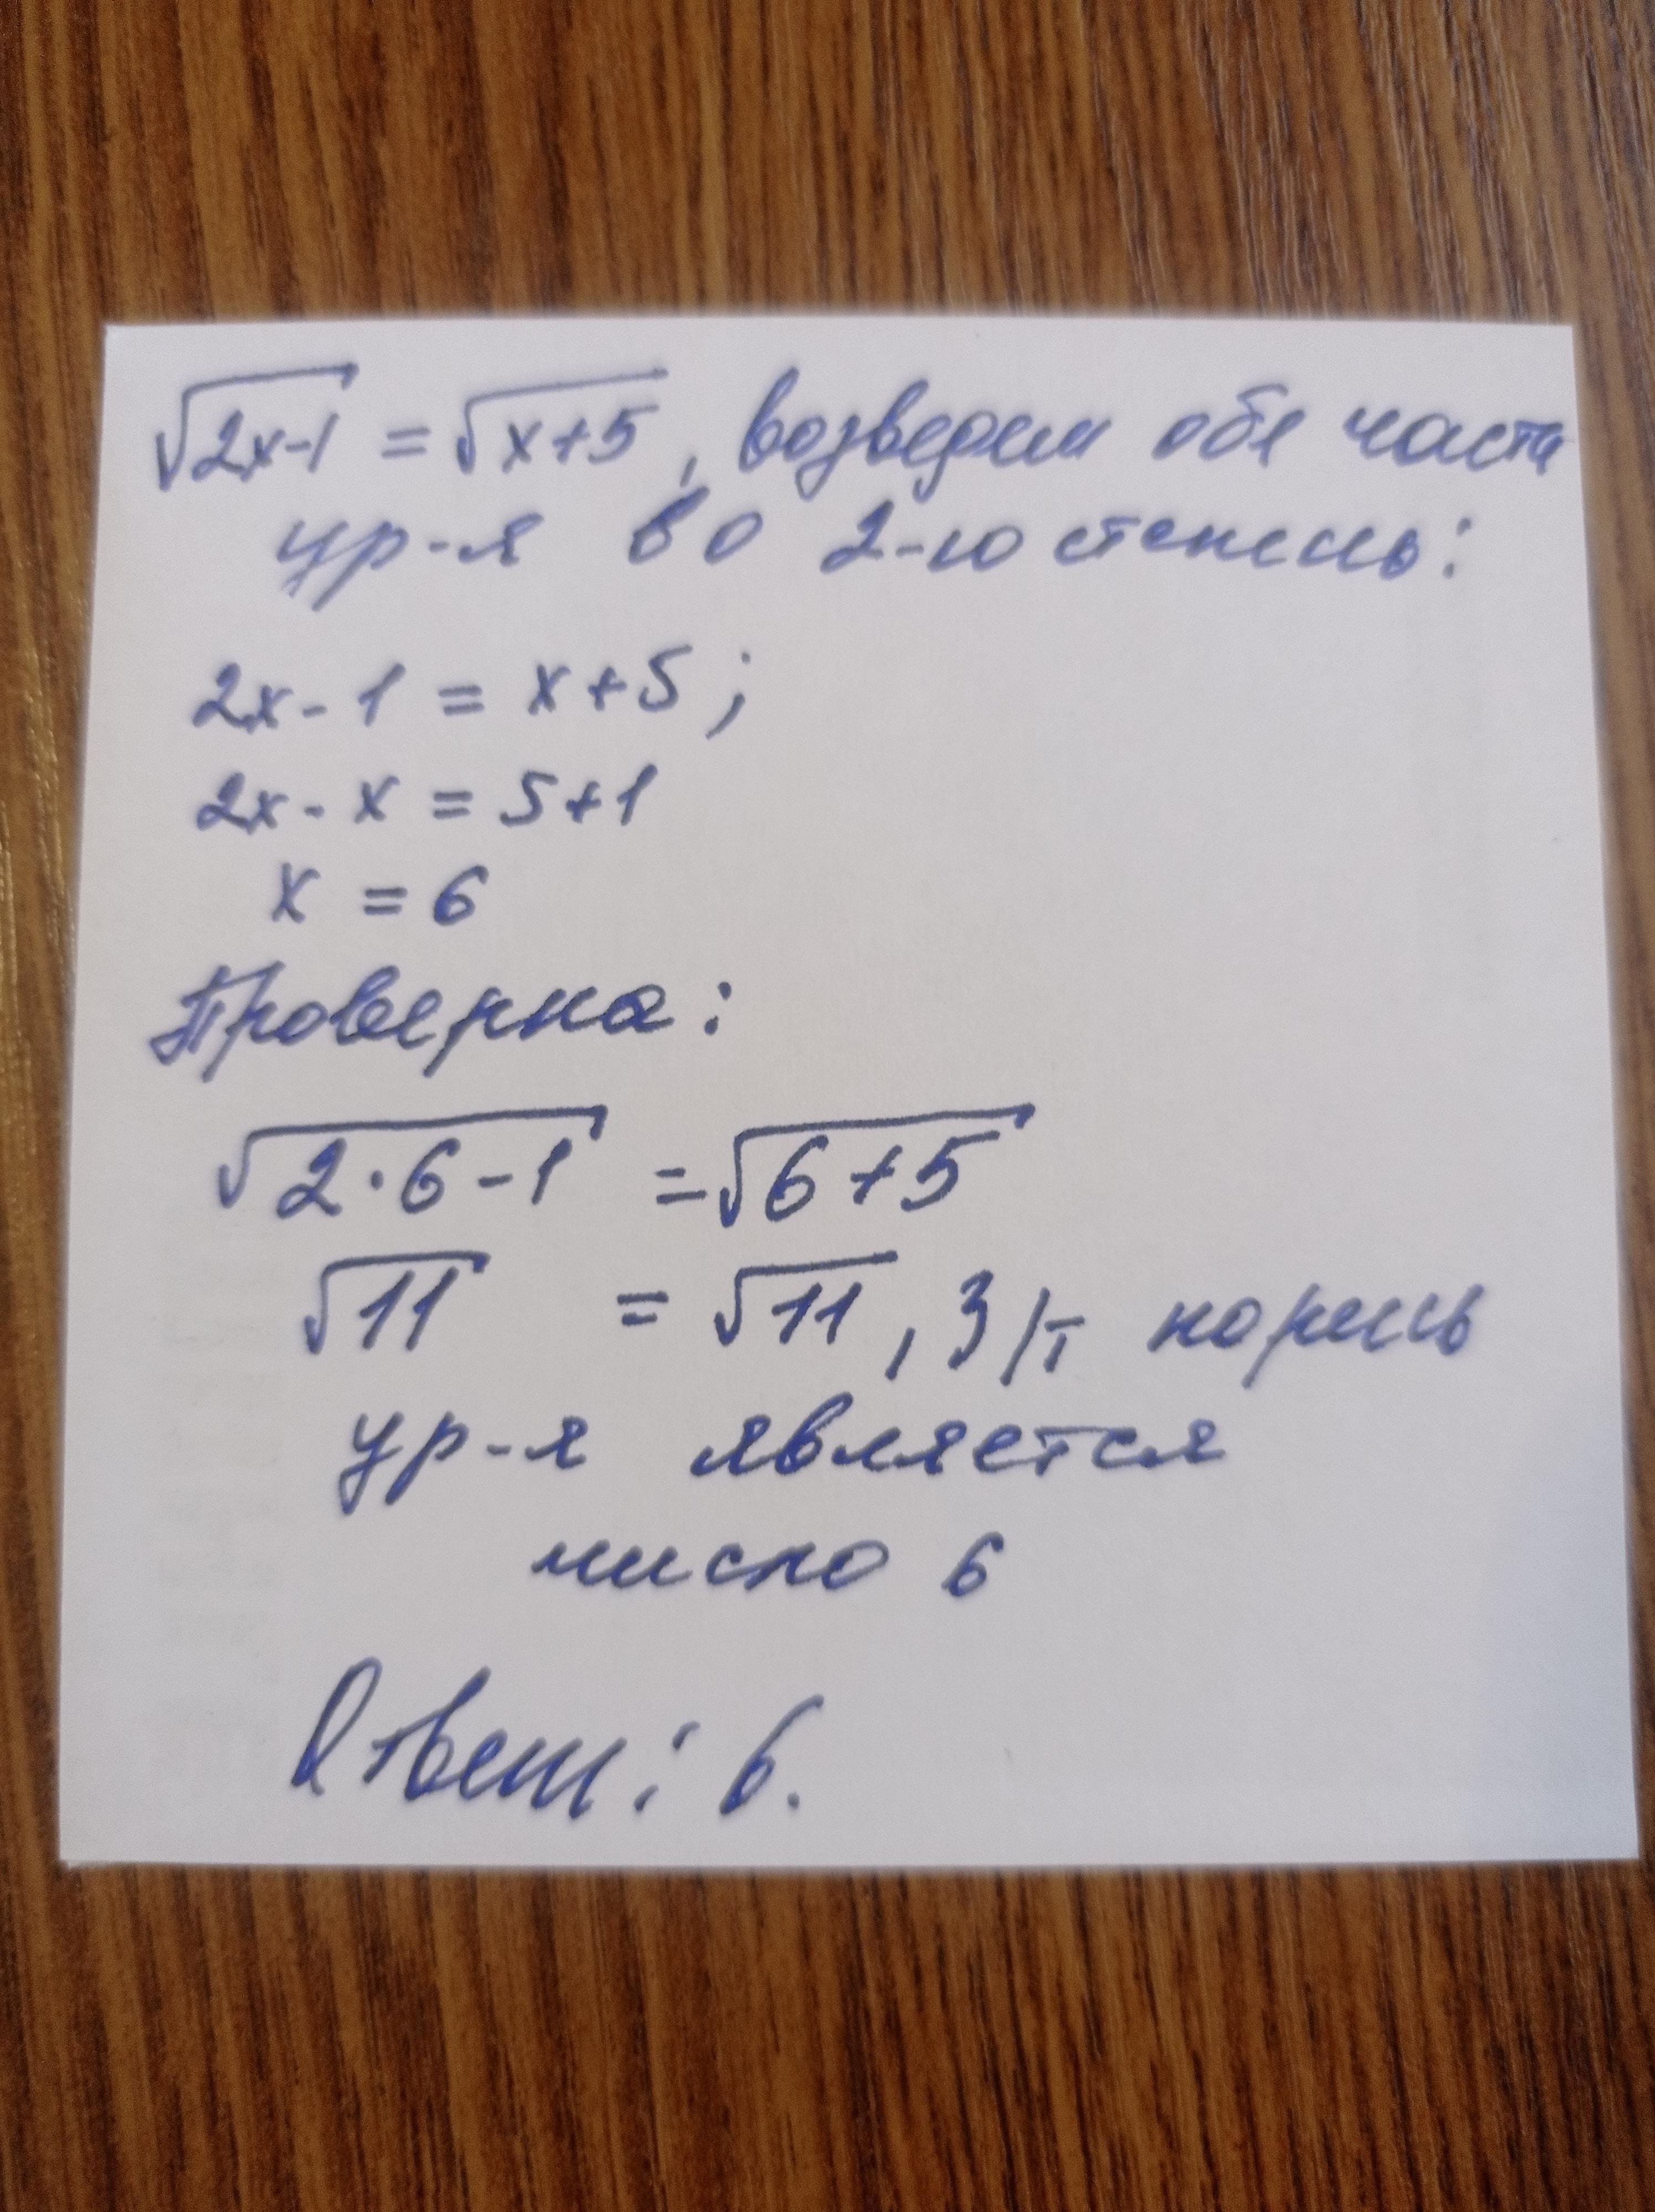 √2x-1 = √x+5, возведем обе части
ур-я во 2-ю степень:
2x - 1 = x+5;
2x - x = 5+1
x = 6
Проверка:
√2·6-1 = √6+5
√11 = √11, з/т корень
ур-я является
число 6
Ответ: 6.